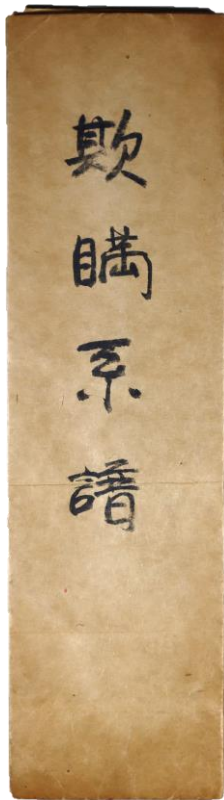 欺瞞系譜